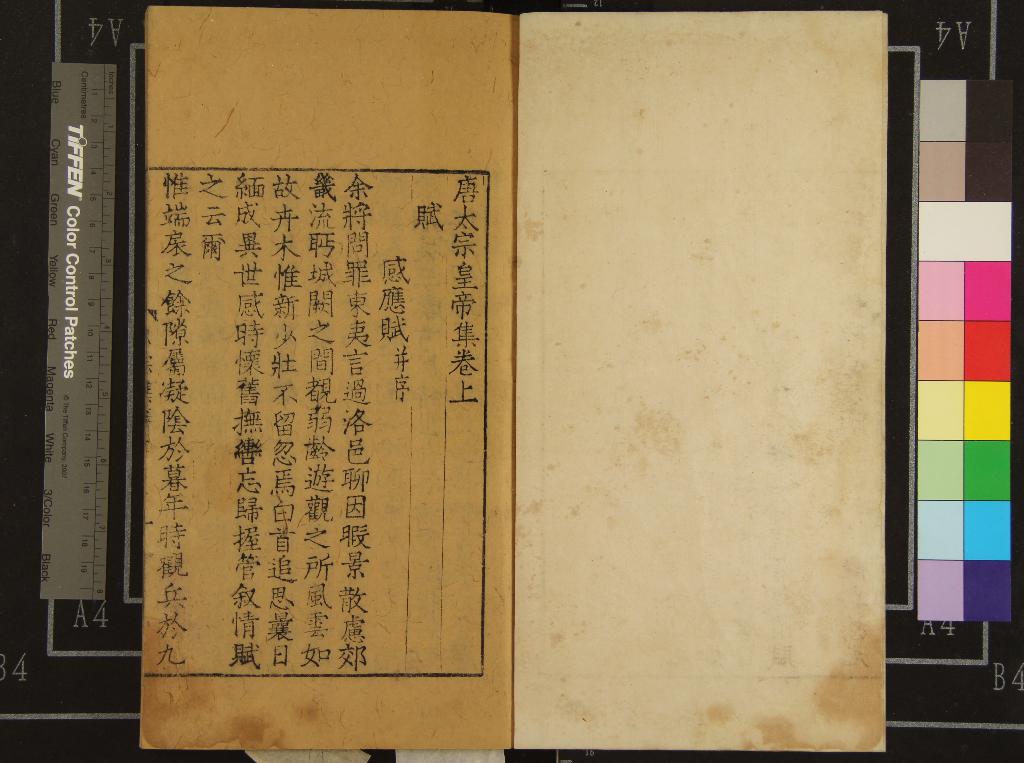 唐太宗皇帝集卷上
賦
感應賦并序
余將問罪東夷言過洛邑聊因暇景散慮郊
畿流眄城闕之間觀弱齡遊觀之所風雲如
故卉木惟新少壯不留忽焉白首追思曩日
緬成異世感時懷舊撫轡忘歸握管叙情賦
之云爾
惟端扆之餘隙屬凝陰於暮年時觀兵於九
A4
A4
A4
A4
B4
B4
Inches
Centimetres
TIFFEN Color Control Patches
© The Tiffen Company, 2007
Blue
Cyan
Green
Yellow
Red
Magenta
White
3/Color
Black